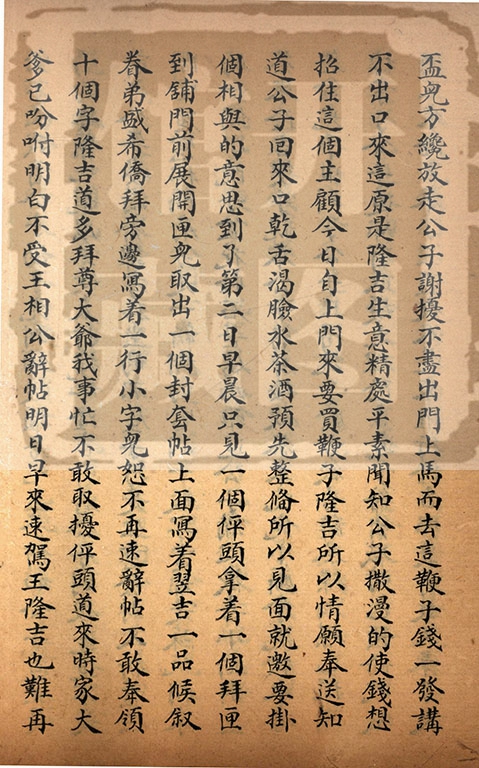 盃兒方纔放走公子謝擾不盡出門上馬而去這鞭子錢一發講
不出口來這原是隆吉生意精處平素聞知公子撒漫的使錢想
招住這個主顧今日自上門來要買鞭子隆吉所以情願奉送知
道公子回來口乾舌渴臉水茶酒預先整俻所以見面就邀要掛
個相與的意思到了第二日早晨只見一個伻頭拿着一個拜匣
到舖門前展開匣兒取出一個封套帖上面寫着翌吉一品候叙
眷弟盛希僑拜旁邊寫着一行小字兒恕不再速辭帖不敢奉領
十個字隆吉道多拜尊大爺我事忙不敢取擾伻頭道來時家大
爹已吩咐明白不受王相公辭帖明日早來速駕王隆吉也難再